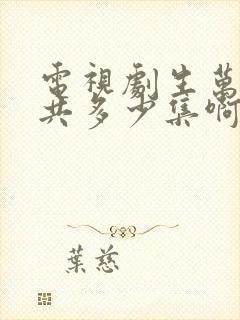 電視劇生萬
共多少集啊
葉慈